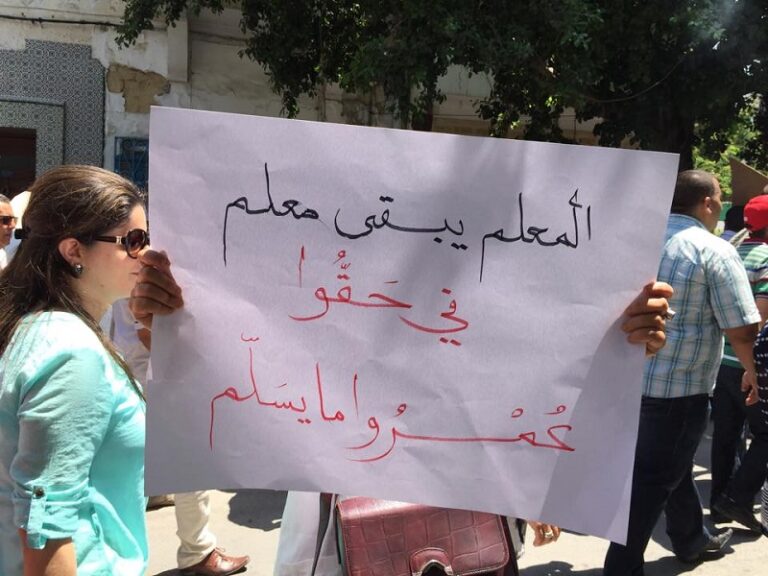 المعلم يبقى معلم
في حَقُّوا
عُمْرُوا ما يسَلّم